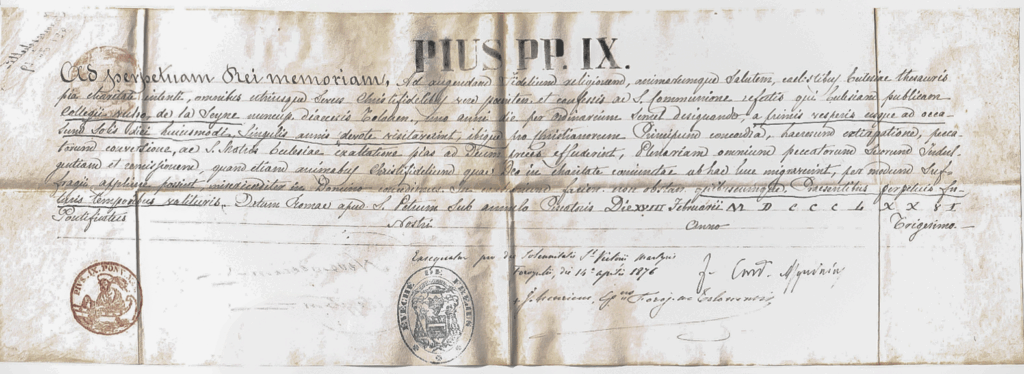 PIUS PP. IX.
Ad perpetuam Rei memoriam. Ad augendam Fidelium religionem, animarumque salutem, caelestibus Ecclesiae thesauris
pia charitate intenti, omnibus utriusque Sexus Christifidelibus vere et confessis ac S. Communione refectis qui Ecclesiam publicam
Collegii de la Seyne diaecesis Tolonen. uno anni die per ordinarium Semel designando, a primis vesperis usque ad occa-
sum Solis diei huiusmodi, Singulis annis devote visitaverint, ibique pro christianorum Principum concordia, haeresum extirpatione, pecca-
torum conversione, ac S. Matris Ecclesiae exaltatione pias ad Deum preces effuderint, Plenariam omnium peccatorum Suorum Indul-
gentiam et remissionem, quam etiam animabus Christifidelium quae Deo in charitate conjunctae ab hac luce migraverint, per modum Suf-
fragii applicare possint misericorditer in Domino concedimus. In contrarium facien. non obstan. quibuscumque. Praesentibus perpetuis fu-
turis temporibus valituris. Datum Romae apud S. Petrum Sub annulo Piscatoris Die XVIII Februarii M D C C C L X X V I
Pontificatus Nostri Anno Trigesimo.
Exequatur per die Solemnitatis Sti
die 14a aprilis 1876
PIUS IX. PONT. M.
EVECHE DE FREJUS